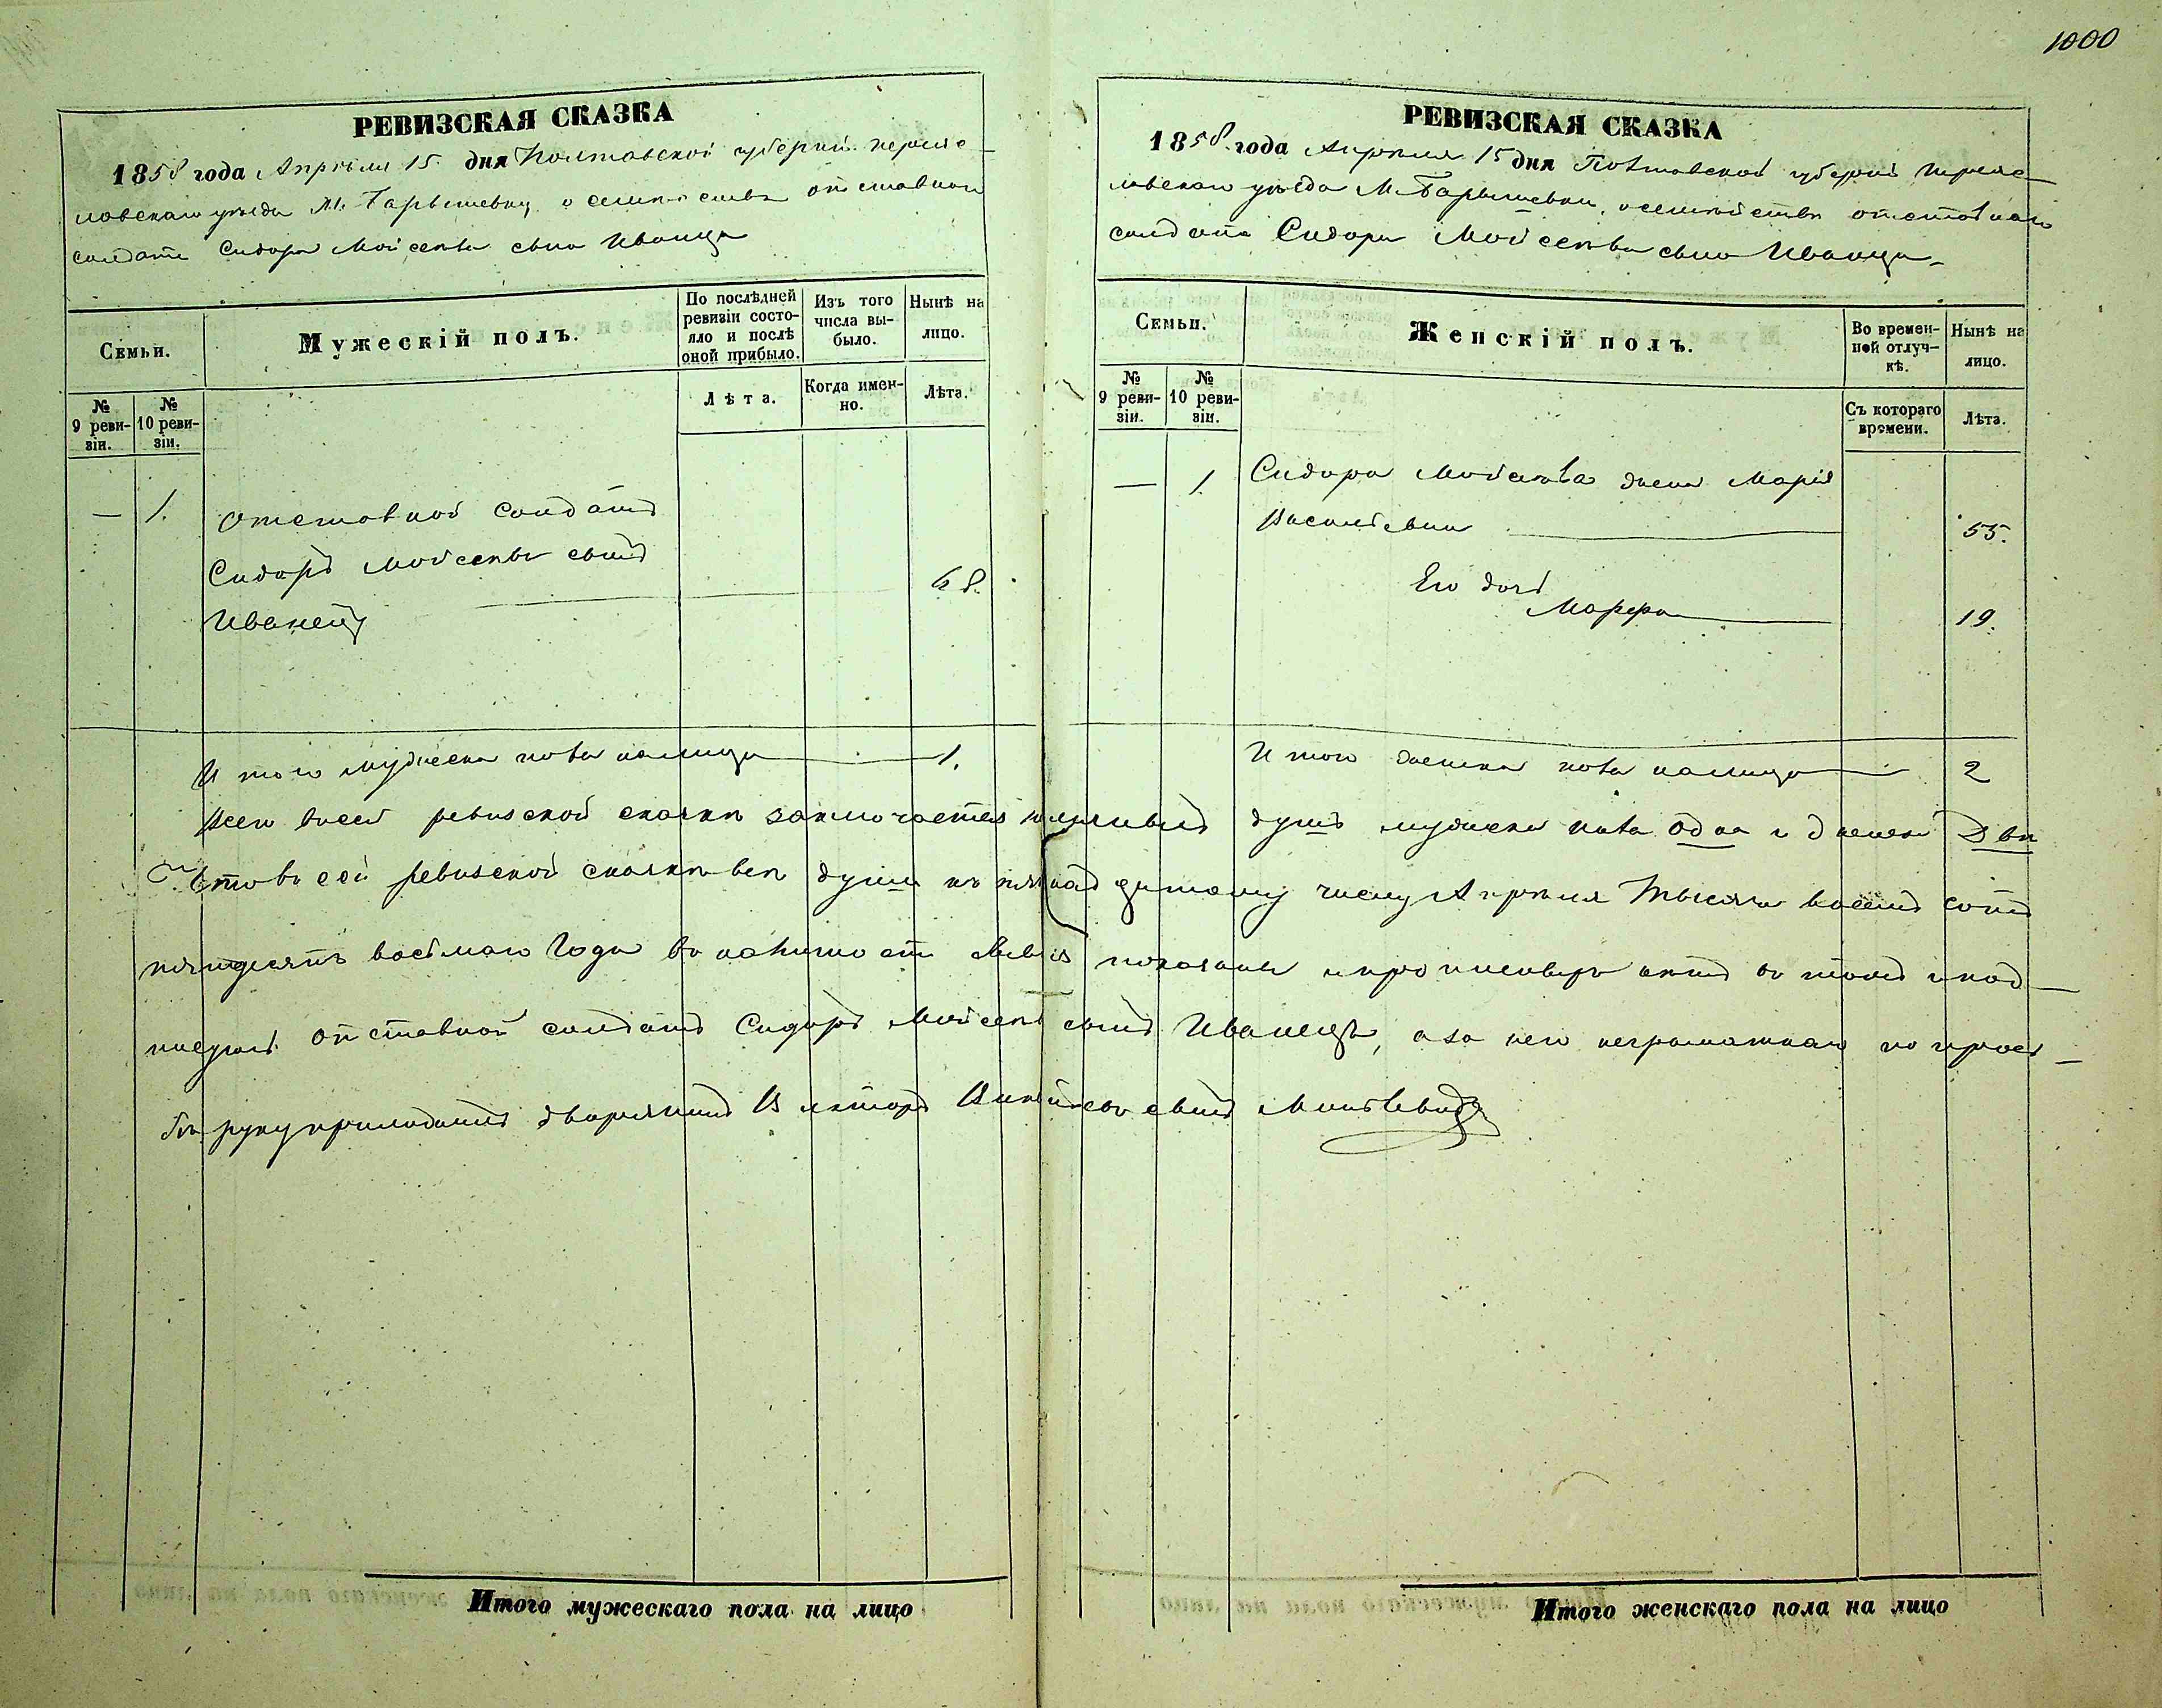 1000
РЕВИЗСКАЯ СКАЗКА
1858 года Апрѣля 15 дня Полтавской губерніи переяс-
лавскаго уѣзда М. Барышевки о семействѣ отставнаго
солдата Сидора Мойсеева сына Иванца
Семьи.
Мужескій полъ.
По послѣдней ревизіи состояло и послѣ оной прибыло.
Изъ того числа выбыло.
Нынѣ на лицо.
№ 9 ревизіи.
№ 10 ревизіи.
Лѣта.
Когда именно.
Лѣта.
— 1. Отставной солдатъ
Сидоръ Мойсеевъ сынъ
Иванецъ — 68.
Итого мужеска пола налицо — 1.
РЕВИЗСКАЯ СКАЗКА
1858 года Апрѣля 15 дня Полтавской губерніи Переяс-
лавскаго уѣзда М. Барышевки, о семействѣ отставнаго
солдата Сидора Мойсеева сына Иванца
Семьи.
Женскій полъ.
Во временной отлучкѣ.
Нынѣ на лицо.
№ 9 ревизіи.
№ 10 ревизіи.
Съ котораго времени.
Лѣта.
— 1. Сидора Мойсеева жена Марія
Васильевна — 55.
Его дочь
Марфа — 19.
Итого женска пола налицо — 2
Всего въ сей ревизской сказкѣ заключается наличныхъ душъ мужеска пола одна и женска двѣ
Что въ сей ревизской сказкѣ всѣ души къ пятнадцатому числу Апрѣля тысяча восемь сотъ
пятидесятъ восьмаго года въ наличности показаны и прописныхъ нѣтъ въ томъ и под-
писуюсь отставной солдатъ Сидоръ Мойсеевъ сынъ Иванецъ, а за него неграмотнаго по прозь-
бѣ руку приложилъ дворянинъ Викторъ сынъ
Итого мужескаго пола на лицо
Итого женскаго пола на лицо